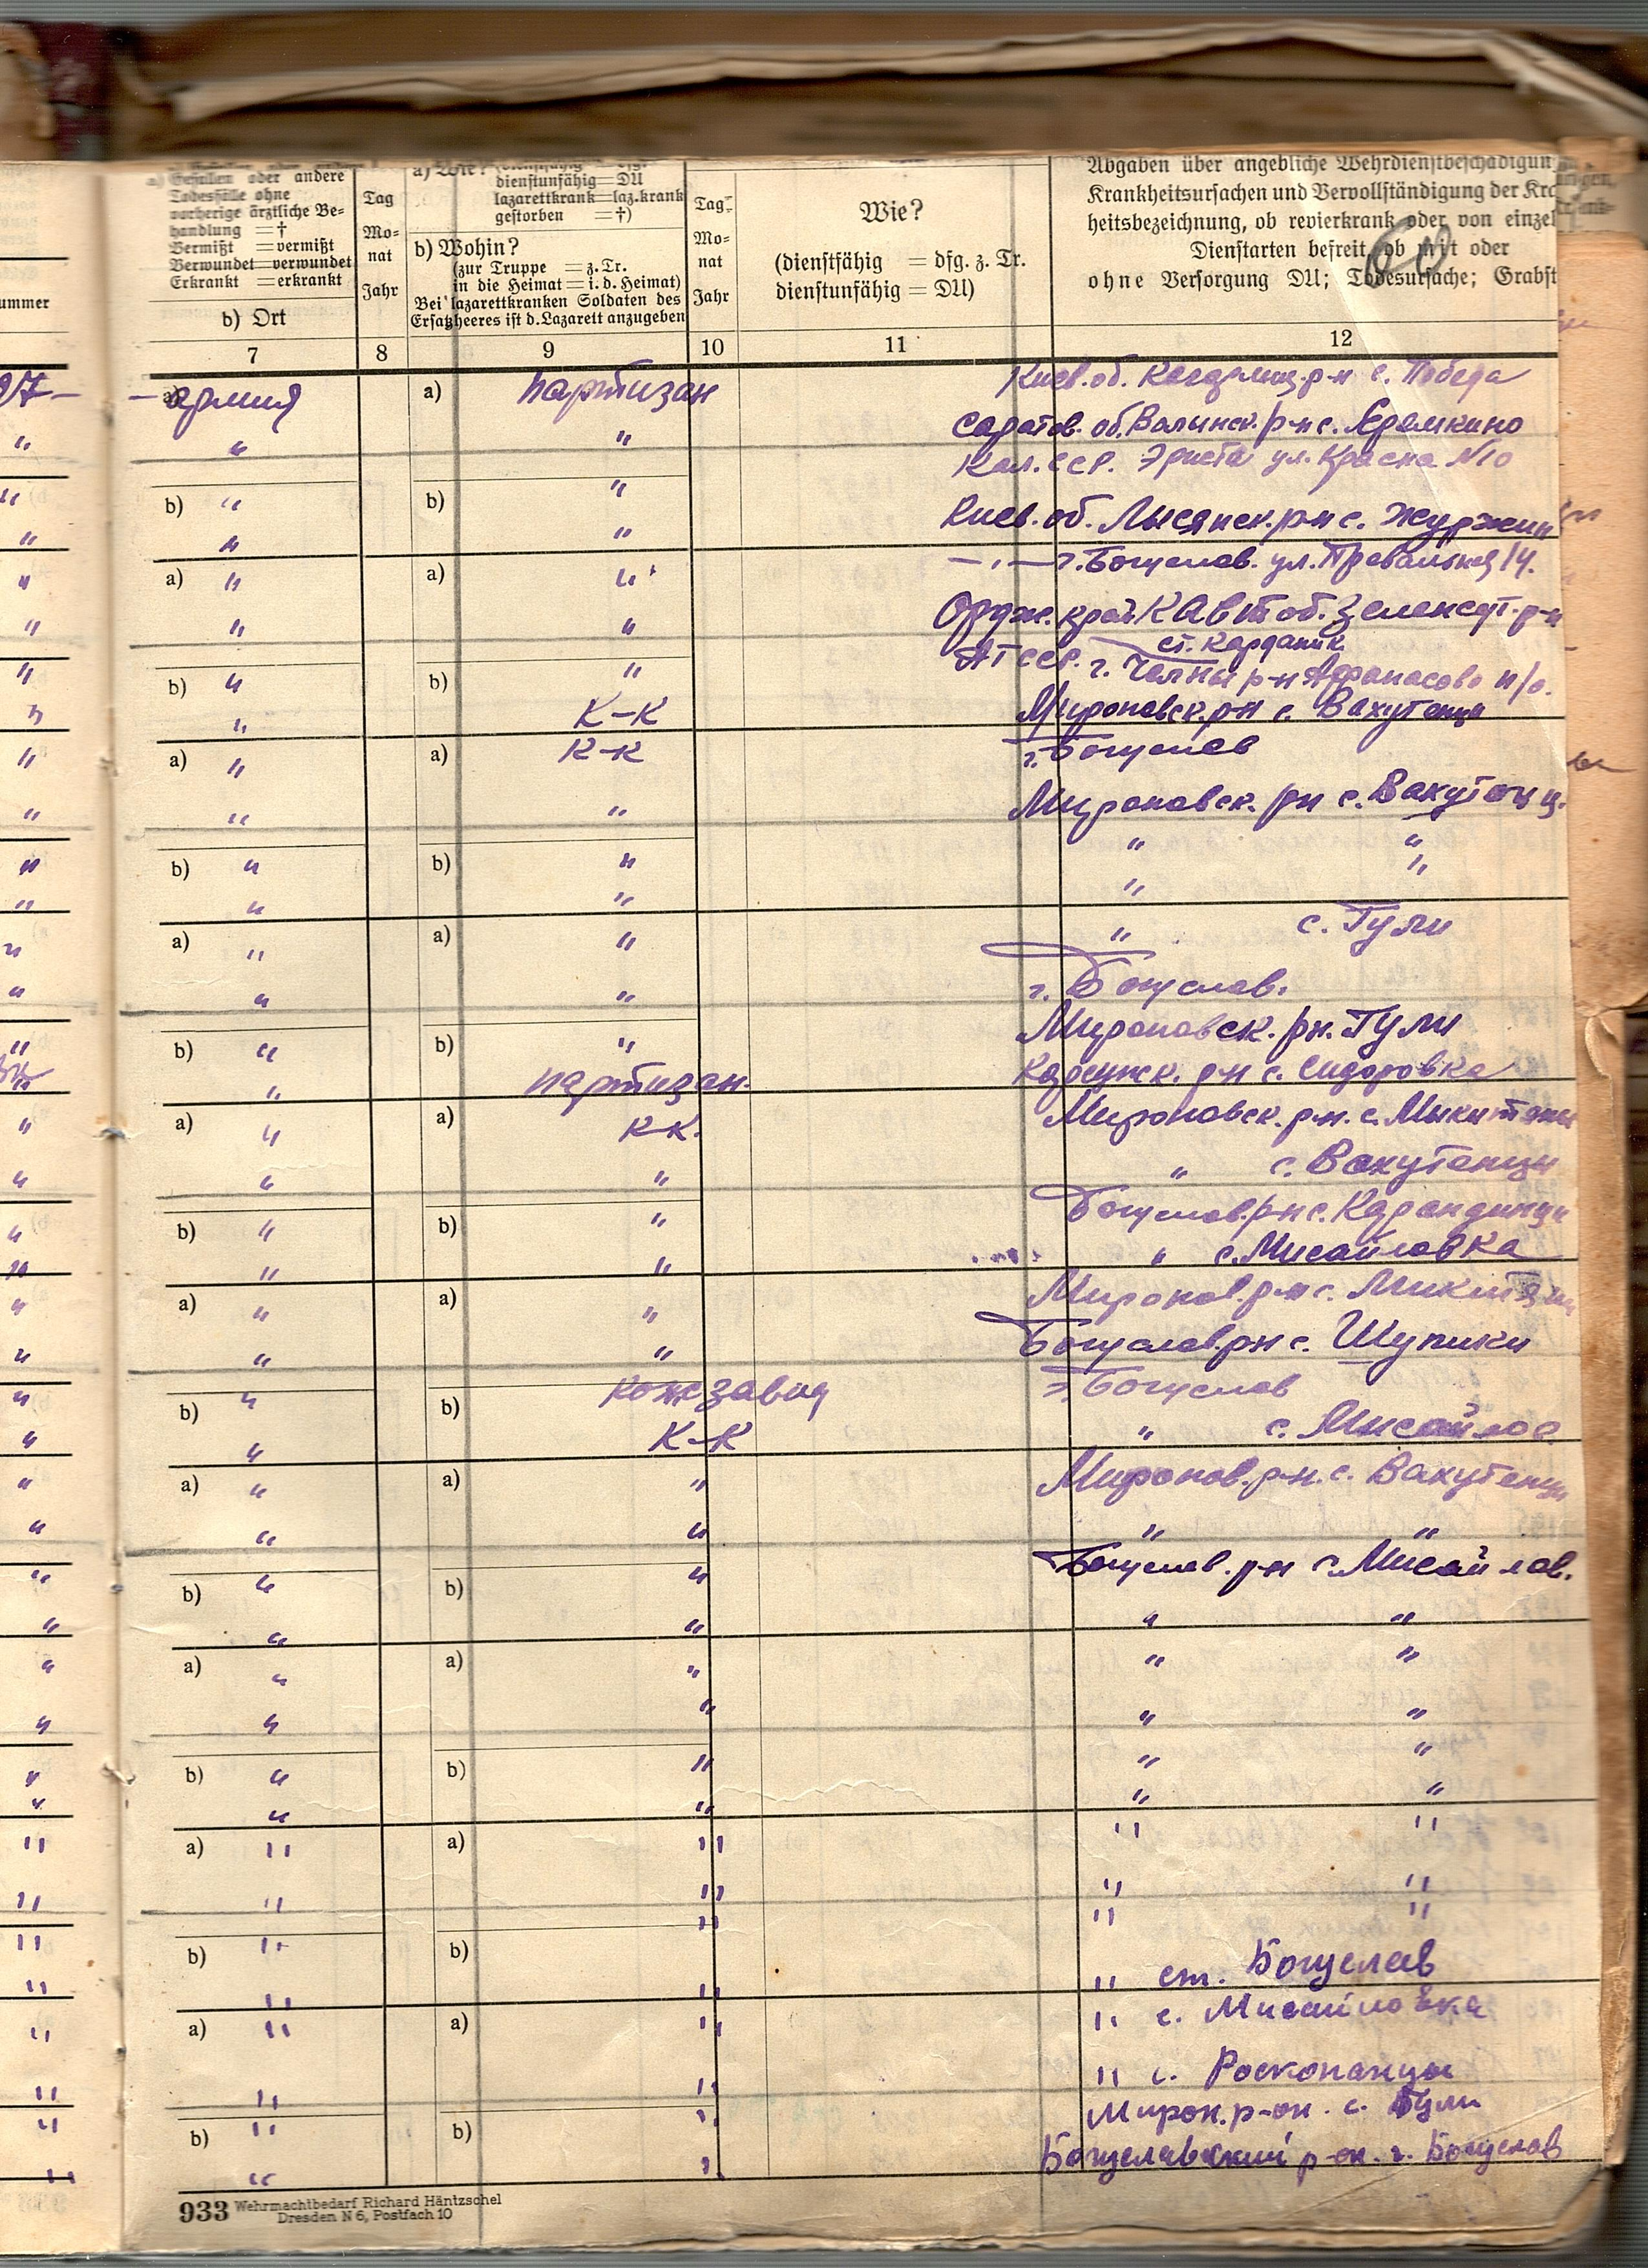 a) Gefallen oder andere
Todesfälle ohne
vorherige ärztliche Be-
handlung =†
Vermißt =vermißt
Verwundet=verwundet
Erkrankt =erkrankt
b) Ort
Tag
Mo-
nat
Jahr
a) Wie?
dienstunfähig=DU
lazarettkrank=laz.krank
gestorben =†)
b) Wohin?
(zur Truppe =z.Tr.
in die Heimat=i.d.Heimat)
Bei lazarettkranken Soldaten des
Ersatzheeres ist d.Lazarett anzugeben
Tag
Mo-
nat
Jahr
Wie?
(dienstfähig = dfg. z. Tr.
dienstunfähig = DU)
Abgaben über angebliche Wehrdienstbeschädigun
Krankheitsursachen und Vervollständigung der Kra
heitsbezeichnung, ob revierkrank oder von einzel
Dienstarten befreit, ob mit oder
ohne Versorgung DU; Todesursache; Grabst
60
ummer
7 8 9 10 11 12
27 – a) армия a) партизан Киев. об. Кагарлиц. р-н с. Победа
" " " Саратов. об. Вольнск. р-н с. Еремкино
Кал. ССР. Эриста ул. Красна N10
" b) " b) "
" " " Киев. об. Лысянск. р-н с. Журжин
" a) " a) " – " – г. Богуслав. ул.
" " " Ордж. край К Авт об. Зеленсут. р-н
ст. Карданик
" b) " b) " АТССР. г. Челны р-н Афанасово п/о.
" " К–К Мироновск. р-н с. Вахутенци
" a) " a) К–К г. Богуслав
" " " Мироновск. р-н с. Вахутенц.
" b) " b) " " "
" " " " "
" a) " a) " " с. Тули
" " " г. Богуслав.
" b) " b) " Мироновск. р-н. Тули
" " партизан. р-н с. Сидоровка
" a) " a) К-К. Мироновск. р-н. с.
" " " " с. Вахутенци
" b) " b) " Богуслав. р-н с. Карандинци
" " " " с. Мисайловка
" a) " a) " Миронов. р-н с.
" " " Богуслав р-н с. Шупики
" b) " b) Кожзавод г. Богуслав
" " К–К " с. Мисайлов
" a) " a) " Миронов. р-н. с. Вахутенци
" " " " "
" b) " b) " Богуслав. р-н с. Мисайлов.
" " " " "
" a) " a) " " "
" " " " "
" b) " b) " " "
" " " " "
" a) " a) " " "
" " " " "
" b) " b) " " "
" " " " ст. Богуслав
" a) " a) " " с. Мисайловка
" " " " с. Роскопанцы
" b) " b) " Мирон. р-он. с. Тули
" " " Богуславский р-он. г. Богуслав
933 Wehrmachtbedarf Richard Häntzschel
Dresden N 6, Postfach 10